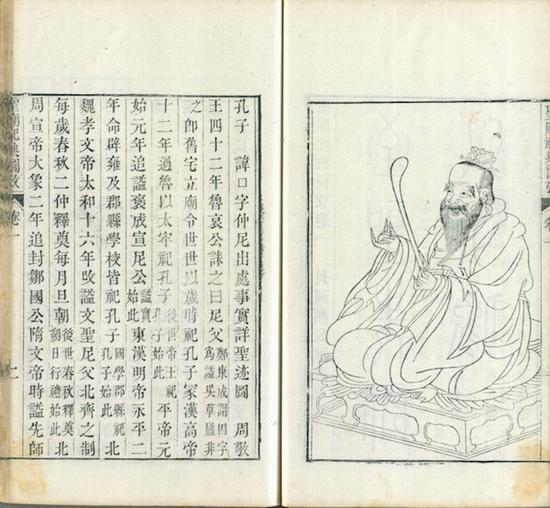 孔子 諱口字仲尼出處事實詳聖迹圖 周敬
王四十二年魯哀公誄之曰尼父鄭康成謂因字為謚吳草廬非
之即舊宅立廟令世世以歲時祀孔子冢漢高帝
十二年過魯以太牢祀孔子後世帝王祀孔子始此平帝元
始元年追謚褒成宣尼公謚實始此東漢明帝永平二
年命辟雍及郡縣學校皆祀孔子國學郡縣祀孔子始此北
魏孝文帝太和十六年改謚文聖尼父北齊之制
每歲春秋二仲釋奠每月旦朝後世春秋釋奠朔日行禮始此北
周宣帝大象二年追封鄒國公隋文帝時謚先師
聖廟祀典圖攷 卷一 二